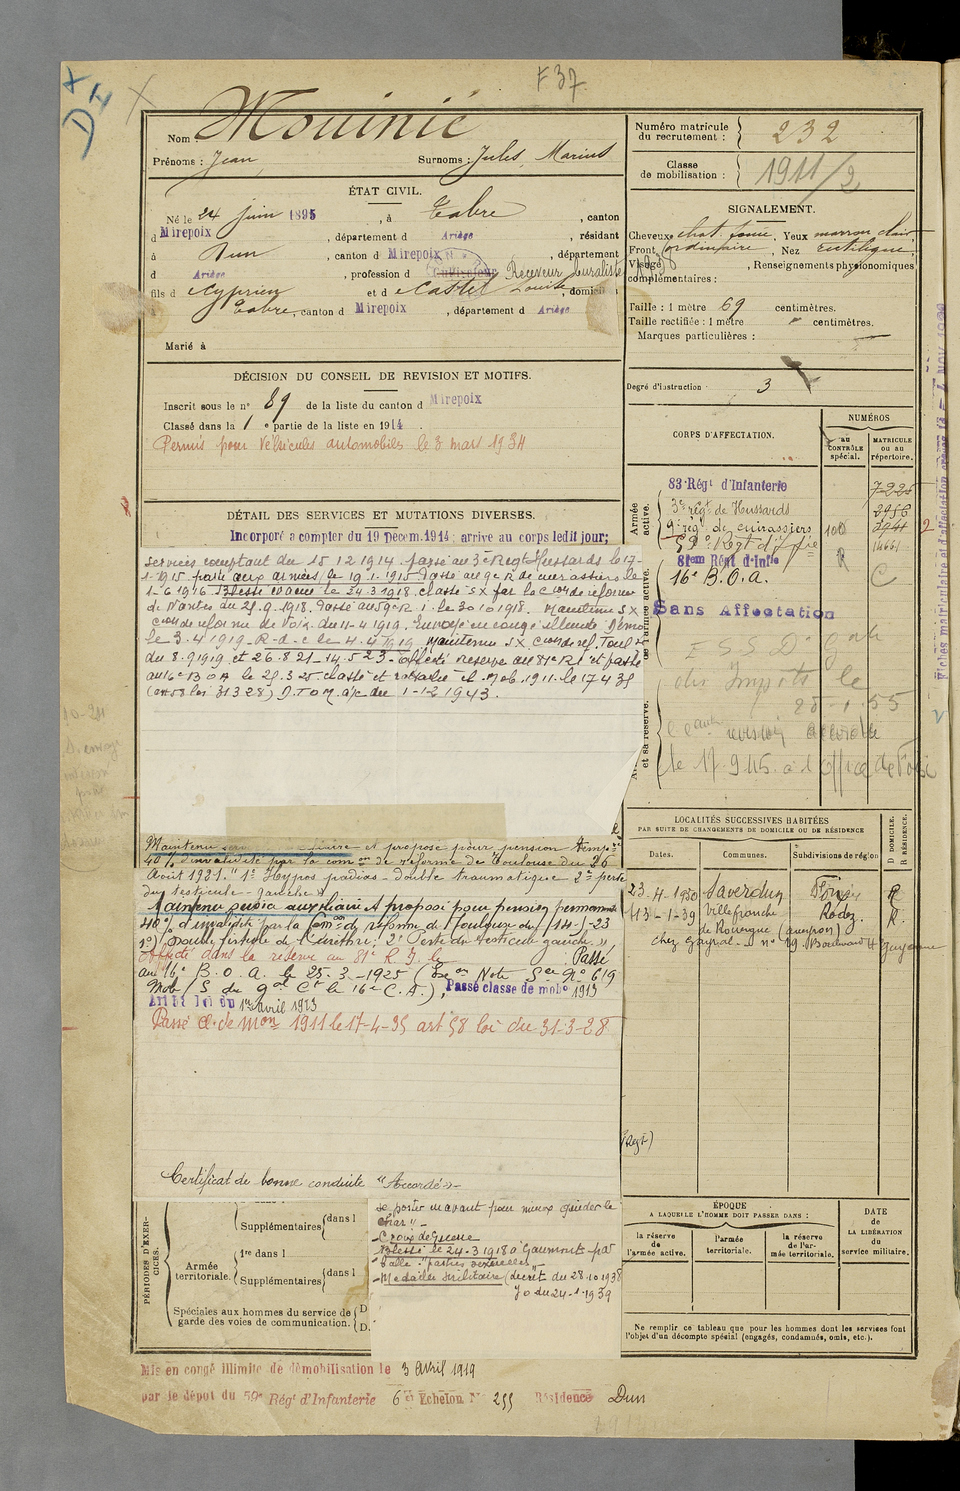 F 37
Nom : Mouinié
Prénoms : Jean Surnoms : Jules, Marius
Numéro matricule du recrutement : 232
Classe de mobilisation : 1911/2
ÉTAT CIVIL.
Né le 24 juin 1895, à Tabre, canton
d Mirepoix, département d Ariège, résidant
à Dun, canton d Mirepoix, département
d Ariège, profession d Cultivateur Receveur buraliste
fils d Cyprien et d Castel Louise, domiciliés
Tabre, canton d Mirepoix, département d Ariège
Marié à
SIGNALEMENT.
Cheveux chat. foncé, Yeux marron clair
Front ordinaire, Nez rectiligne
Visage, Renseignements physionomiques
complémentaires :
Taille : 1 mètre 69 centimètres.
Taille rectifiée : 1 mètre " centimètres.
Marques particulières :
Degré d'instruction : 3
DÉCISION DU CONSEIL DE REVISION ET MOTIFS.
Inscrit sous le n° 89 de la liste du canton d Mirepoix
Classé dans la 1 e partie de la liste en 1914.
Permis pour Véhicules automobiles le 8 mars 1934
DÉTAIL DES SERVICES ET MUTATIONS DIVERSES.
Incorporé a compter du 19 Decem. 1914; arrive au corps ledit jour;
services comptant du 15 12 1914. passé au 3e Regt Hussards le 17-
1-1915 parti aux armées le 19.1.1915 Passé au 9e R de cuirassiers le
1-6 1916 Blessé le 24.3 1918. classé SX par la Con de reforme
de Nantes du 25.9.1918. Passé au 59e R.I. le 30 10 1918. Maintenu SX
Con de reforme de Foix du 11-4 1919. Envoyé en congé illimité Démo
le 3.4 1919 - R.d.c le 4.4 1919 Maintenu SX Con de ref. Toulse
du 8-9 1919 et 26.8 21_14.5 23_ Affecté reserve au 81e RI et passé
au 16e BOA le 25.3-25 classé et rattaché cl. Mob. 1911. le 17 4 35
(art 58 loi 31 3 28) D.T.O.M. ajc du 1-12 1943.
Maintenu et proposé pour pension temp.re
40% d'invalidité par la comon de réforme de Toulouse du 26
Août 1921. "1° Hypospadias - double traumatique 2° perte
du testicule - gauche "
Maintenu service auxiliaire et proposé pour pension permanente
40% d'invalidité par la Comon de réforme de Toulouse du 14-5-23
1°) fistule de l'urèthre; 2° Perte du testicule gauche. "
Affecté dans la réserve au 81e R. I. le Passé
au 16e B. O. A. le 25-3-1925 (Exon Note Son N° 619
Mob / S du gal Ct le 16e C. A.), Passé classe de mobon 1913
Art 58 loi du 1er avril 1923
Passé Cl. de Mon 1911 le 17-4-35 art 58 loi du 31-3-28
Certificat de bonne conduite "Accordé"
CORPS D'AFFECTATION.
NUMÉROS
au CONTRÔLE spécial.
MATRICULE ou au répertoire.
Armée active.
83e Régt d'Infanterie
3e régt de Hussards
9e régt de cuirassiers
59e Régt d'Infie
81em Régt d'Infie
16e B.O.A.
Sans Affectation
et sa réserve.
des Impots le
25-1-55
révision accordée
LOCALITÉS SUCCESSIVES HABITÉES
PAR SUITE DE CHANGEMENTS DE DOMICILE OU DE RÉSIDENCE
Dates. Communes. Subdivisions de région
D DOMICILE. R RÉSIDENCE.
23-4-1930 Saverdun Foix R
13-1-39 Villefranche Rodez R.
de Rouergue (aveyron)
chez Gayral - n° 19 Boulevard de Guyenne
PÉRIODES D'EXERCICES.
Supplémentaires dans l
Armée territoriale.
1re dans l
Supplémentaires dans l
Spéciales aux hommes du service de garde des voies de communication.
D
D.
se porter en avant pour mieux guider le
char" -
- Croix de Guerre
- Blessé le 24-3 1918 à Caumont par
balle "parties sexuelles" -
- Médaille militaire (décret du 28.10 1938
JO du 24-1-1939
ÉPOQUE
A LAQUELLE L'HOMME DOIT PASSER DANS :
la réserve de l'armée active.
l'armée territoriale.
la réserve de l'armée territoriale.
DATE de LA LIBÉRATION du service militaire.
Ne remplir ce tableau que pour les hommes dont les services font
l'objet d'un décompte spécial (engagés, condamnés, omis, etc.).
Mis en congé illimité de démobilisation le 3 Avril 1919
par le dépôt du 59e Régt d'Infanterie 6e Echelon N° 255 Résidence Dun